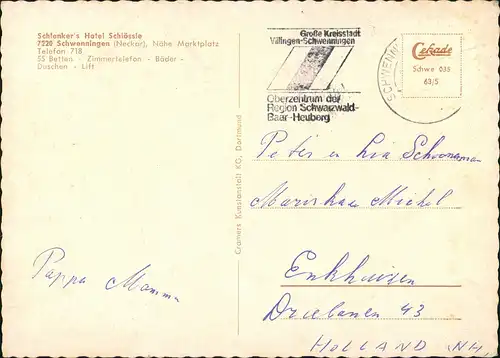 Schlenker's Hotel Schlössle
7220 Schwenningen (Neckar), Nähe Marktplatz
Telefon 718
55 Betten - Zimmertelefon - Bäder -
Duschen - Lift
Große Kreisstadt
Villingen-Schwenningen
Oberzentrum der
Region Schwarzwald-
Baar-Heuberg
SCHWENNI
Cekade
Schwe 035
63/5
Cramers Kunstanstalt KG, Dortmund
Peter en Lia Schoonaman
Michel
Enkhuizen
Driebanen 43
HOLLAND NH
Pappa Mamma